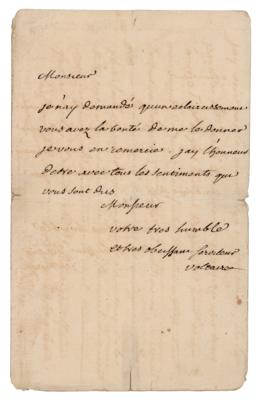 Monsieur
je n'ay demandé qu'un eclaircissement
vous avez la bonté de me le donner
je vous en remercie. jay l'honneur
detre avec tous les sentiments que
vous sont dus
Monsieur
votre tres humble
et tres obeissant serviteur
voltaire